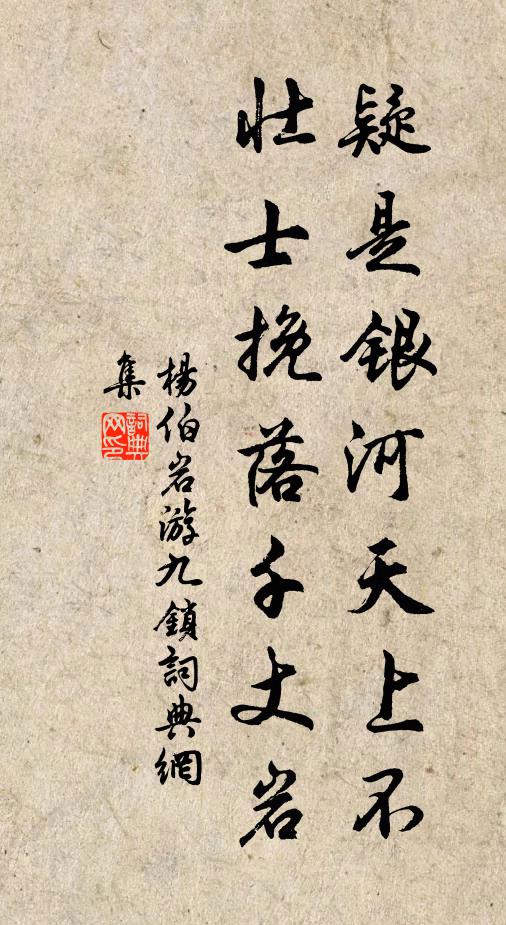 疑是银河天上不
壮士挽落千丈岩
楊伯岩游九鎖詞典網
集
詞典网印